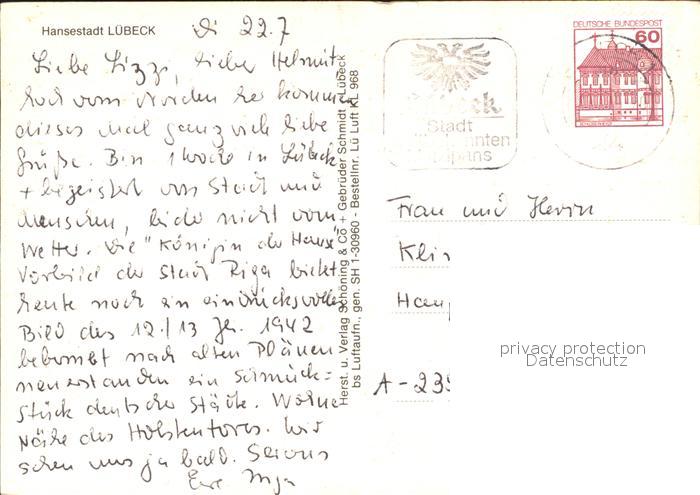 Hansestadt LÜBECK
Di 22.7
Liebe Lizzi, lieber Helmut
hoch vom Norden her kommen
dieses mal ganz viele liebe
Grüße. Bin 1 Woche in Lübeck
+ begeistert von Stadt und
Menschen, leider nicht vom
Wetter. Die "Königin der Hanse"
Vorbild der Stadt Riga bietet
heute noch ein eindrucksvolles
Bild des 12./13 Jh. 1942
bebombt nach alten Plänen
neu erstanden ein Schmuck=
stück deutscher Städte. Wohne
Nähe des Holstentores. Wir
sehen uns ja bald. Servus
Eure Inga
Herst. u. Verlag Schöning & Co + Gebrüder Schmidt Lübeck
bs Luftaufn., gen. SH 1-30960 - Bestellnr. Lü Luft KL 968
Stadt
DEUTSCHE BUNDESPOST
60
Frau und Herrn
A-23
privacy protection
Datenschutz